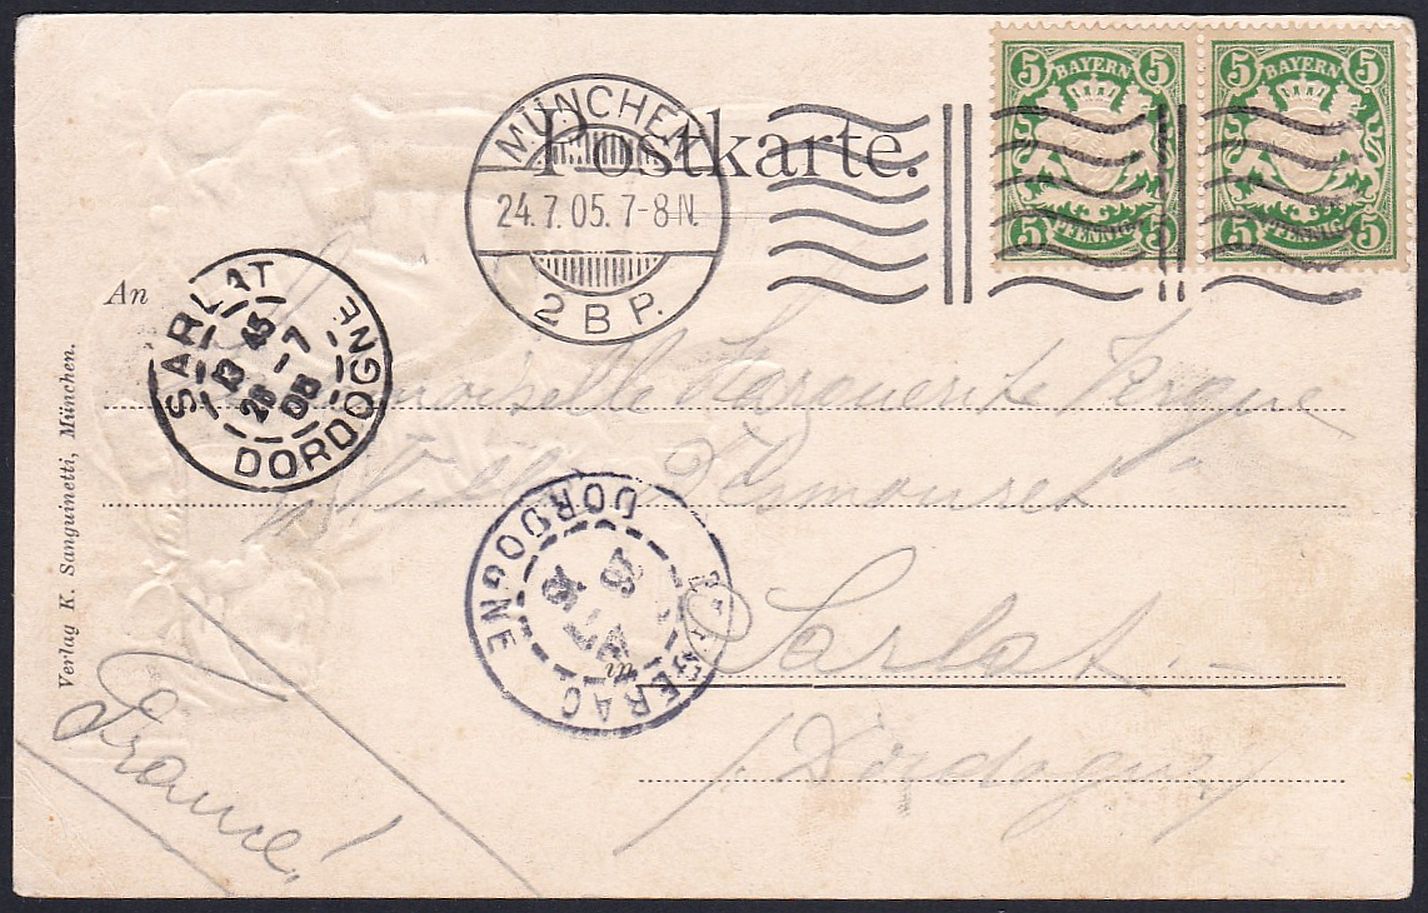 Postkarte.
5 BAYERN 5
5 PFENNIG 5
5 BAYERN 5
5 PFENNIG 5
MÜNCHEN
24.7.05. 7-8 N.
2 B P.
An
SARLAT
13 45
26 -7
05
DORDOGNE
Verlag K. Sanguinetti, München.
Mademoiselle Marguerite
Sarlat.
(Dordogne)
BERGERAC
DORDOGNE
in
France!